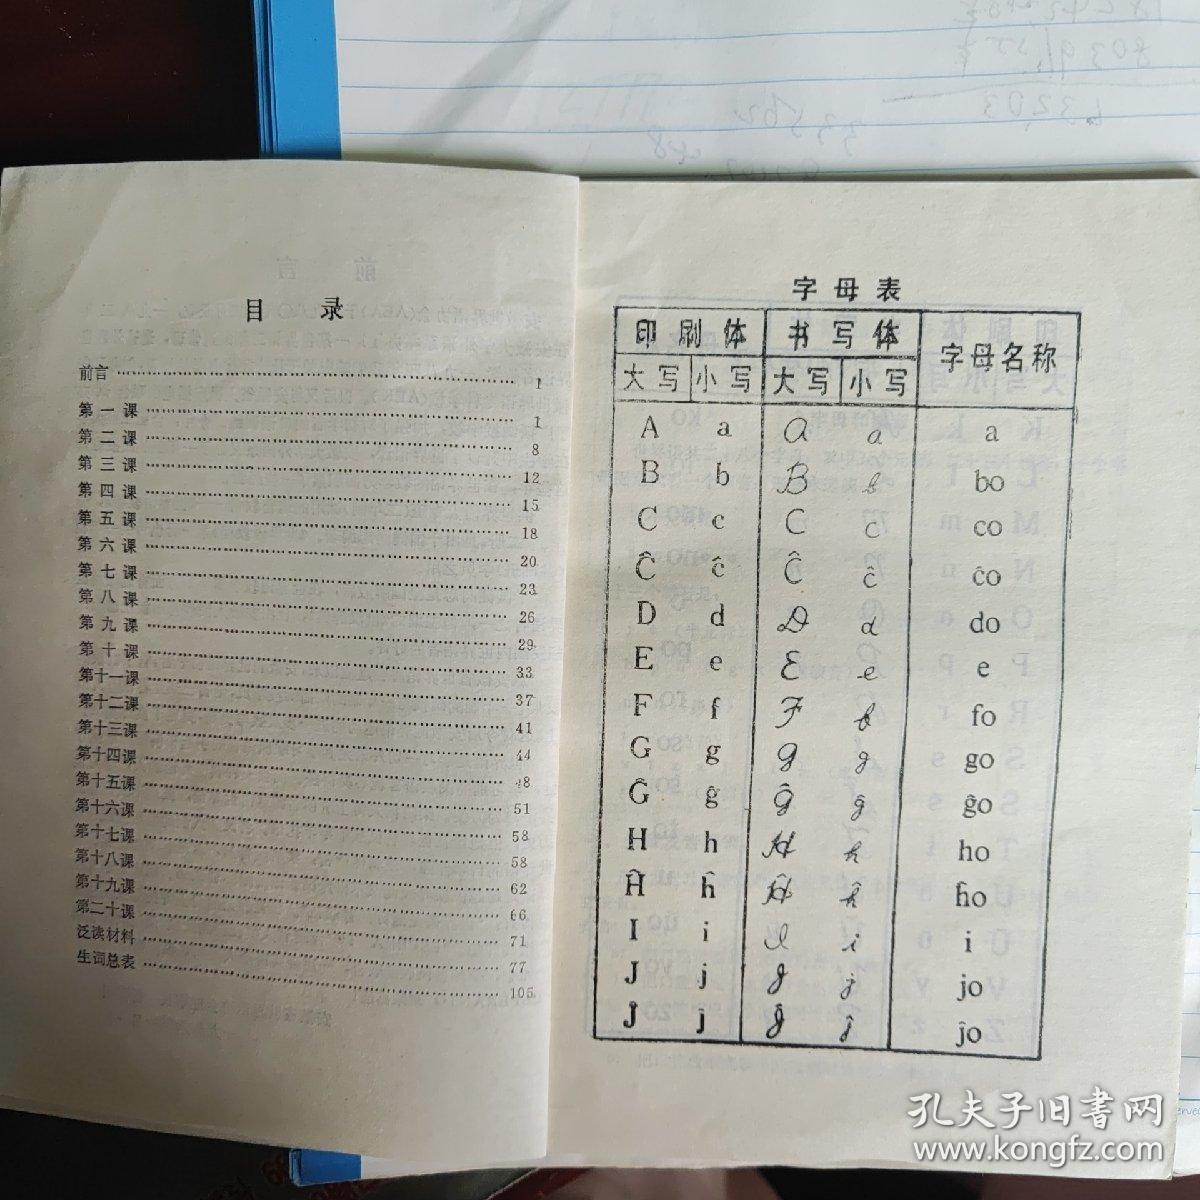 目 录
前言 1
第一课 1
第二课 8
第三课 12
第四课 15
第五课 18
第六课 20
第七课 23
第八课 26
第九课 29
第十课 33
第十一课 37
第十二课 41
第十三课 44
第十四课 48
第十五课 51
第十六课 58
第十七课 58
第十八课 62
第十九课 66
第二十课 71
泛读材料 77
生词总表 105
字母表
印刷体 书写体 字母名称
大写 小写 大写 小写
A a A a a
B b B b bo
C c C c co
Ĉ ĉ Ĉ ĉ ĉo
D d D d do
E e E e e
F f F f fo
G g G g go
Ĝ ĝ Ĝ ĝ ĝo
H h H h ho
Ĥ ĥ Ĥ ĥ ĥo
I i I i i
J j J j jo
Ĵ ĵ Ĵ ĵ ĵo
孔夫子旧书网
www.kongfz.com